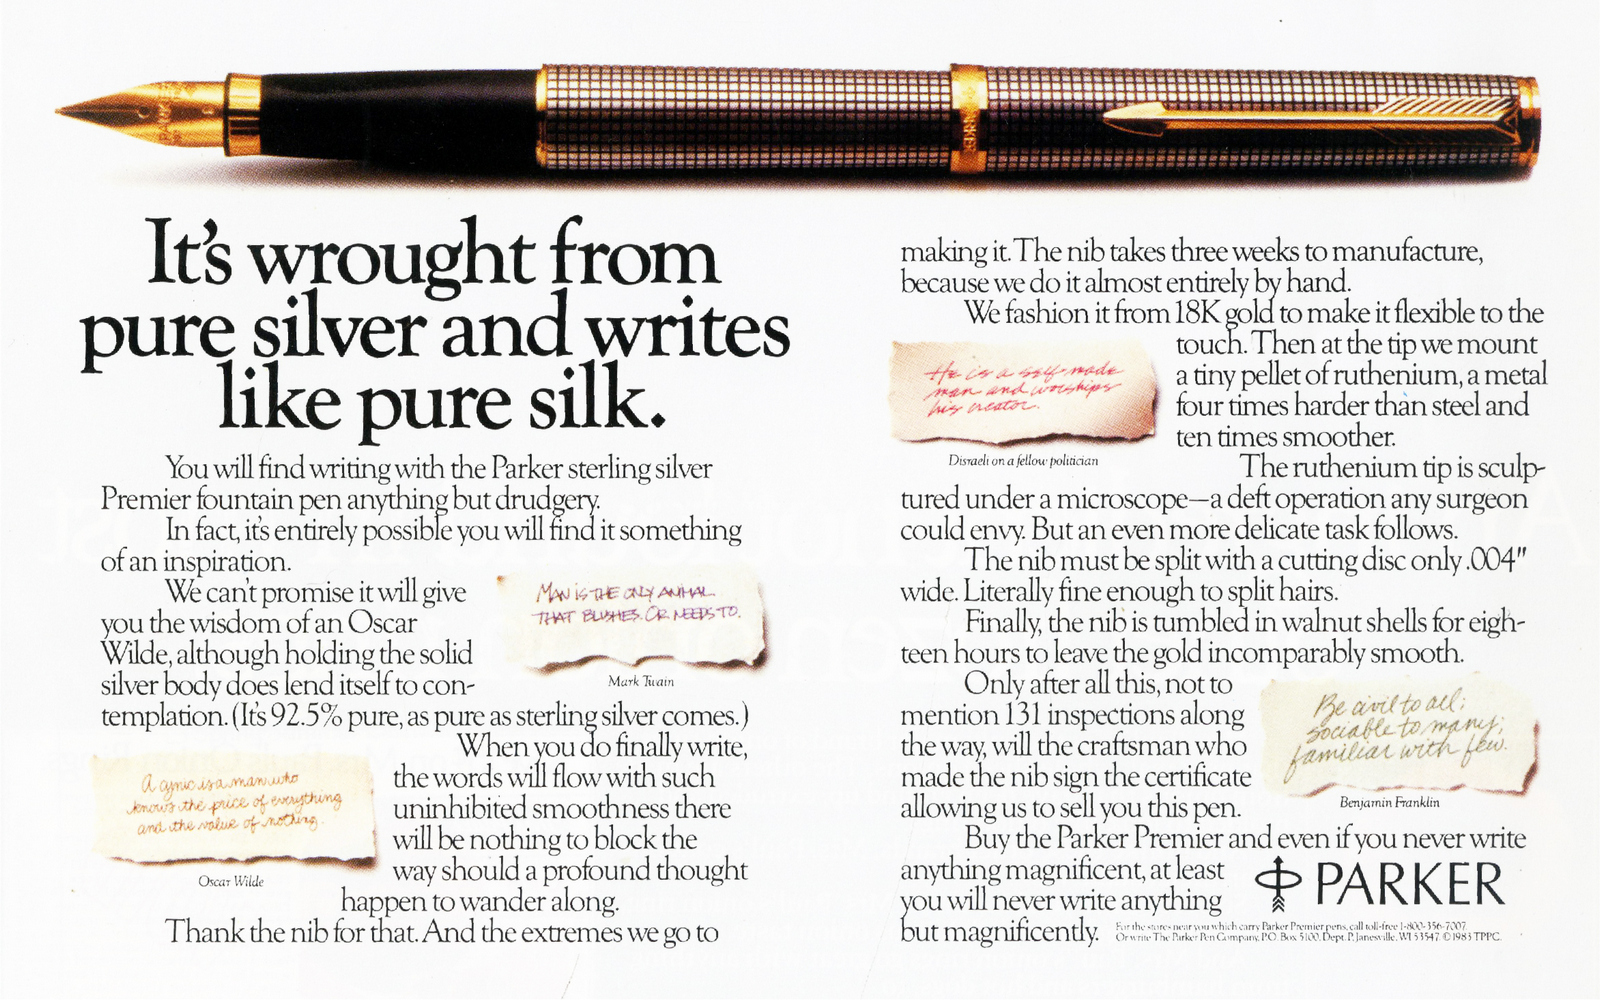 It's wrought from
pure silver and writes
like pure silk.
You will find writing with the Parker sterling silver
Premier fountain pen anything but drudgery.
In fact, it's entirely possible you will find it something
of an inspiration.
We can't promise it will give
you the wisdom of an Oscar
Wilde, although holding the solid
silver body does lend itself to con-
templation. (It's 92.5% pure, as pure as sterling silver comes.)
MAN IS THE ONLY ANIMAL
THAT BLUSHES. OR NEEDS TO.
Mark Twain
When you do finally write,
the words will flow with such
uninhibited smoothness there
will be nothing to block the
way should a profound thought
happen to wander along.
A cynic is a man who
knows the price of everything
and the value of nothing.
Oscar Wilde
Thank the nib for that. And the extremes we go to
making it. The nib takes three weeks to manufacture,
because we do it almost entirely by hand.
We fashion it from 18K gold to make it flexible to the
touch. Then at the tip we mount
a tiny pellet of ruthenium, a metal
four times harder than steel and
ten times smoother.
He is a self-made
man and worships
his creator.
Disraeli on a fellow politician
The ruthenium tip is sculp-
tured under a microscope—a deft operation any surgeon
could envy. But an even more delicate task follows.
The nib must be split with a cutting disc only .004"
wide. Literally fine enough to split hairs.
Finally, the nib is tumbled in walnut shells for eigh-
teen hours to leave the gold incomparably smooth.
Only after all this, not to
mention 131 inspections along
the way, will the craftsman who
made the nib sign the certificate
allowing us to sell you this pen.
Be civil to all;
sociable to many;
familiar with few.
Benjamin Franklin
Buy the Parker Premier and even if you never write
anything magnificent, at least
you will never write anything
but magnificently.
PARKER
For the stores near you which carry Parker Premier pens, call toll-free 1-800-356-7007.
Or write The Parker Pen Company, P.O. Box 5100, Dept. P, Janesville, WI 53547. © 1983 TPPC.